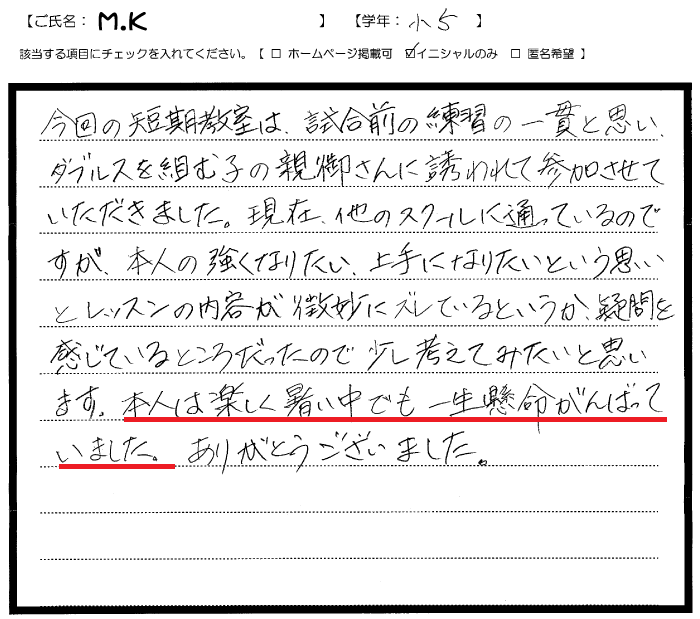 【ご氏名: M.K 】 【学年: 小5 】
該当する項目にチェックを入れてください。【 □ ホームページ掲載可 ☑イニシャルのみ □ 匿名希望 】
今回の短期教室は、試合前の練習の一貫と思い、
ダブルスを組む子の親御さんに誘われて参加させて
いただきました。現在、他のスクールに通っているので
すが、本人の強くなりたい、上手になりたいという思い
とレッスンの内容が微妙にズレているというか、疑問を
感じているところだったので少し考えてみたいと思い
ます。本人は楽しく暑い中でも一生懸命がんばって
いました。ありがとうございました。